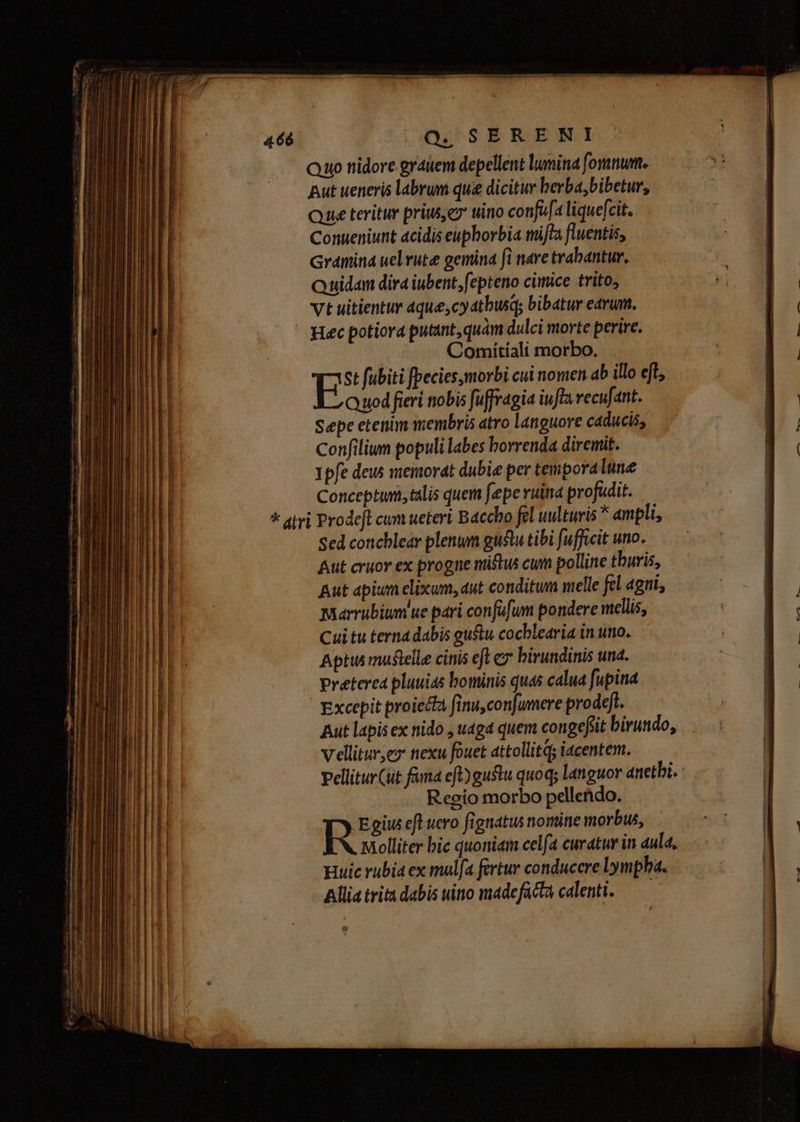 466 Q. SERENI
Quo nidore grauem depellent lumina ſomnum.
Aut ueneris labrum quæ dicitur herba, bibetur,
Quæ teritur prius, & uino confuſa liqueſcit.
Conueniunt acidis euphorbia miſta fluentis,
Gramina uel rutæ gemina ſi nare trahantur.
Quidam dira iubent, ſepteno cimice trito,
Vt uitientur aquæ, cyathusq; bibatur earum.
Hæc potiora putant, quàm dulci morte perire.
Comitiali morbo.
Est ſubiti ſpecies, morbi cui nomen ab illo eſt,
Quod fieri nobis ſuffragia iuſta recuſant.
Sæpe etenim membris atro languore caducis,
Conſilium populi labes horrenda diremit.
Ipſe deus memorat dubiæ per tempora lunæ
Conceptum, talis quem ſæpe ruina profudit.
* atri Prodeſt cum ueteri Baccho fel uulturis * ampli,
Sed conchlear plenum gustu tibi ſufficit uno.
Aut cruor ex progne mistus cum polline thuris,
Aut apium elixum, aut conditum melle fel agni,
Marrubium'ue pari confuſum pondere mellis,
Cui tu terna dabis gustu cochlearia in uno.
Aptus mustellæ cinis eſt & hirundinis una.
Præterea pluuias hominis quas calua ſupina
Excepit proiecta ſinu, conſumere prodeſt.
Aut lapis ex nido, uaga quem congeßit hirundo,
Vellitur, & nexu fouet attollitq; iacentem.
Pellitur (ut fama eſt) gustu quoq; languor anethi.
Regio morbo pellendo.
Regius eſt uero ſignatus nomine morbus,
Molliter hic quoniam celſa curatur in aula,
Huic rubia ex mulſa fertur conducere lympha.
Allia trita dabis uino madefacta calenti.